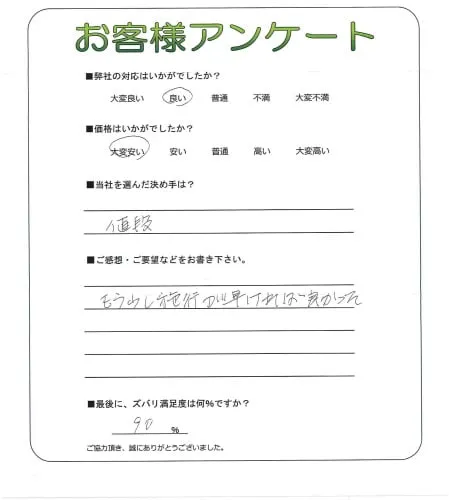 お客様アンケート
■弊社の対応はいかがでしたか？
大変良い 良い 普通 不満 大変不満
■価格はいかがでしたか？
大変安い 安い 普通 高い 大変高い
■当社を選んだ決め手は？
値段
■ご感想・ご要望などをお書き下さい。
もう少し施行が早ければ良かった
■最後に、ズバリ満足度は何％ですか？
90 ％
ご協力頂き、誠にありがとうございました。